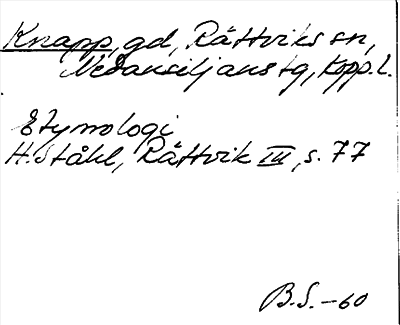 Knapp, gd, Rättviks sn,
Nedansiljans tg, Kopp. l.
Etymologi
H. Ståhl, Rättvik III, s. 77
B.S. -60